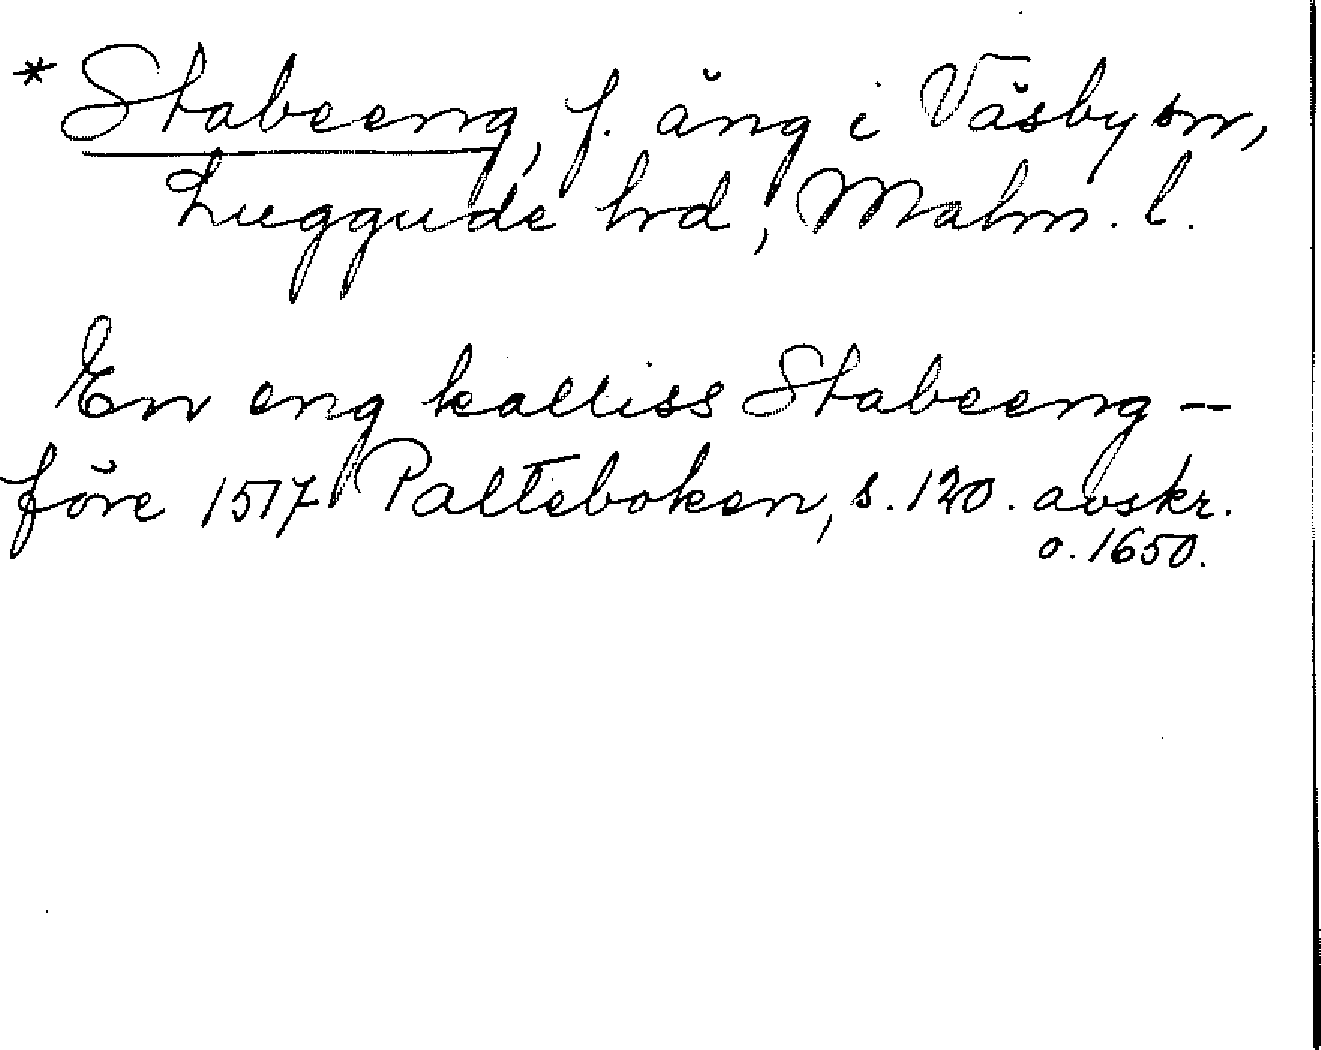 * Stabeeng, f. äng i Väsby sn,
Luggude hrd, Malm. l.
En eng kalliss Stabeeng --
före 1517 Palteboken, s. 120. avskr.
o. 1650.